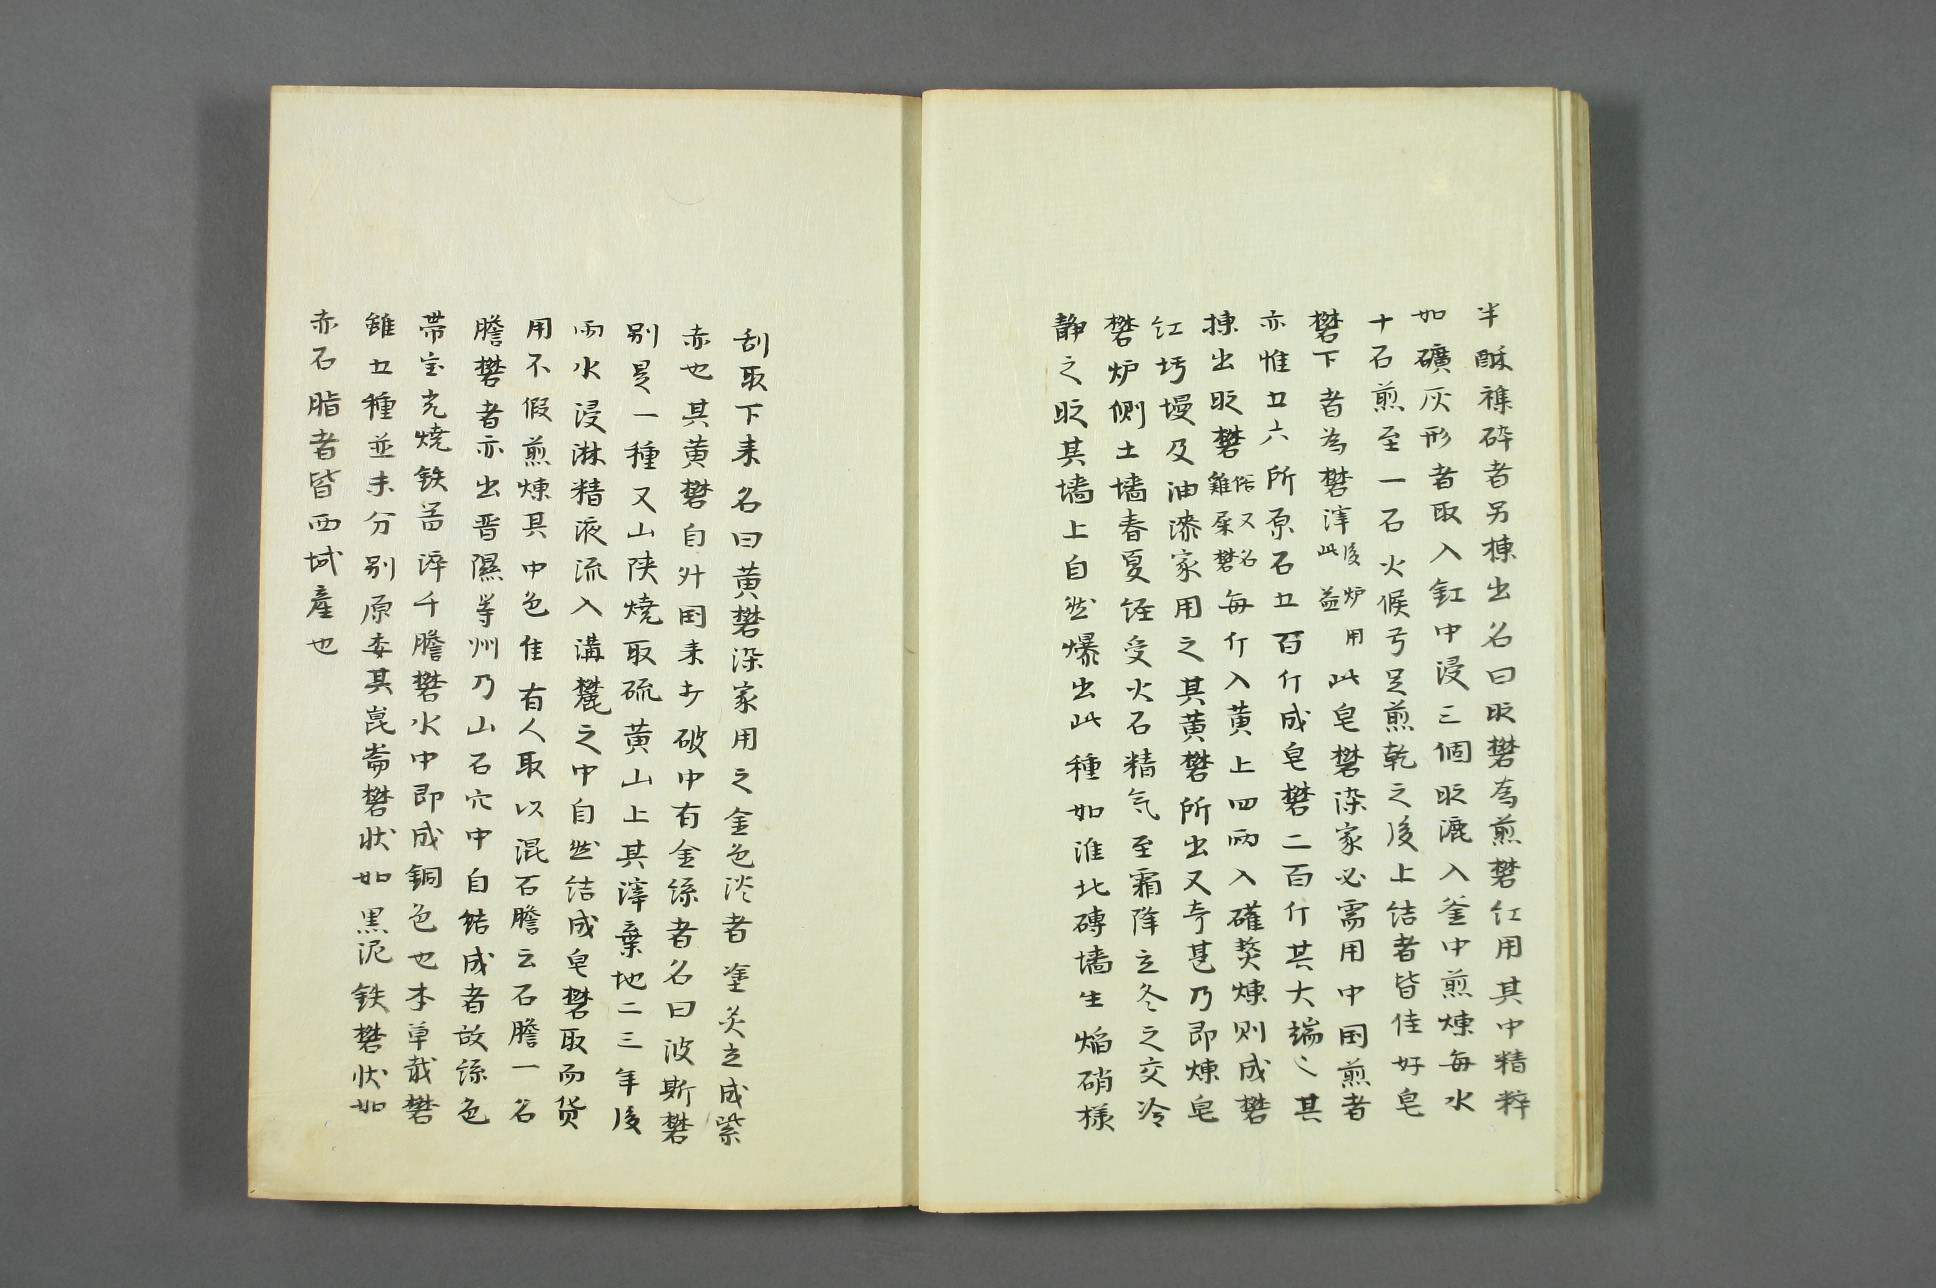 半酥襍碎者另揀出名曰时礬為煎礬紅用其中精粹
如礦灰形者取入缸中浸三個时漉入釜中煎煉每水
十石煎至一石火候方足煎乾之後上结者皆佳好皂
礬下者為礬滓後炉用此益此皂礬染家必需用中国煎者
亦惟五六所原石五百斤成皂礬二百斤其大端也其
揀出时礬俗又名雞屎礬每斤入黄土四兩入礶熬煉则成礬
紅圬墁及油漆家用之其黄礬所出又奇甚乃即煉皂
礬炉侧土墙春夏经受火石精气至霜降立冬之交冷
静之时其墙上自然爆出此種如淮北磚墙生焰硝様
刮取下来名曰黄礬染家用之金色淡者塗炙立成紫
赤也其黄礬自外国来打破中有金絲者名曰波斯礬
别是一種又山陕燒取硫黄山上其滓棄地二三年後
雨水浸淋精液流入溝麓之中自然结成皂礬取而货
用不假煎煉其中色佳有人取以混石膽云石膽一名
膽礬者亦出晋隰等州乃山石穴中自结成者故绿色
带宝光燒铁器淬于膽礬水中即成銅色也本草载礬
雖五種並未分别原委其崑崙礬状如黑泥铁礬状如
赤石脂者皆西域産也